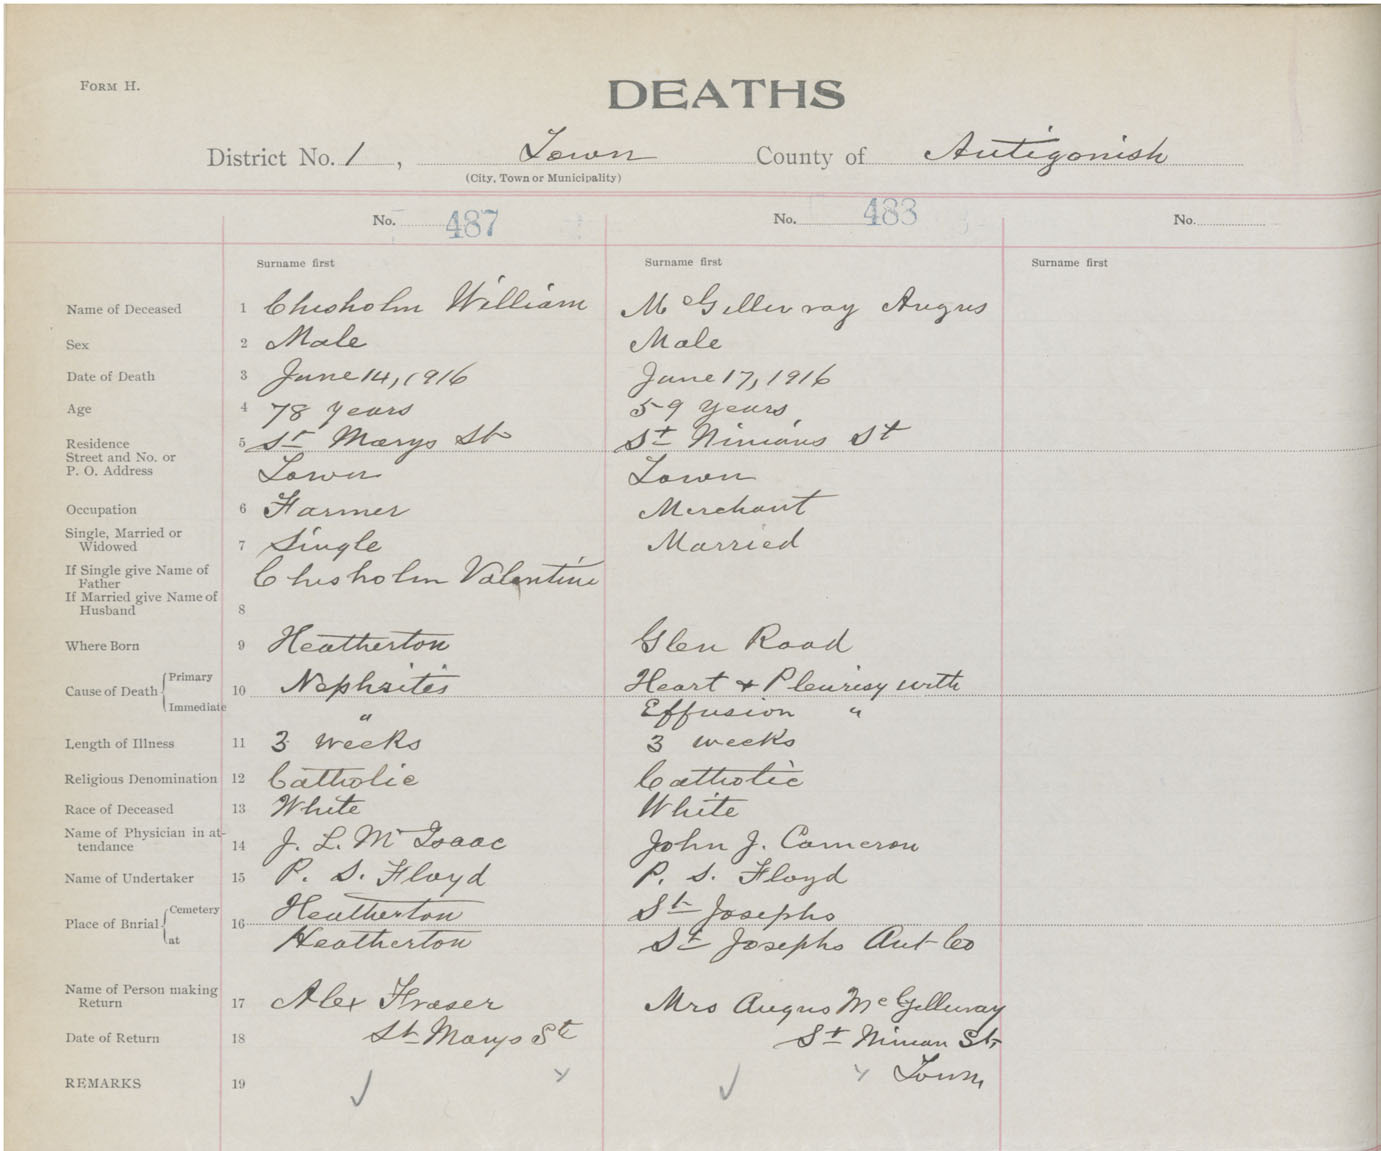 FORM H.
DEATHS
District No. 1, Town County of Antigonish
(City, Town or Municipality)
No. 487 No. 483 No.
Surname first Surname first Surname first
Name of Deceased 1 Chisholm William McGillivray Angus
Sex 2 Male Male
Date of Death 3 June 14, 1916 June 17, 1916
Age 4 78 years 59 years
Residence 5 St Marys St St Ninians St
Street and No. or
P. O. Address Town Town
Occupation 6 Farmer Merchant
Single, Married or
Widowed 7 Single Married
If Single give Name of
Father Chisholm Valentine
If Married give Name of
Husband 8
Where Born 9 Heatherton Glen Road
Primary
Cause of Death 10 Nephritis Heart & Pleurisy with
Immediate " Effusion "
Length of Illness 11 3 weeks 3 weeks
Religious Denomination 12 Catholic Catholic
Race of Deceased 13 White White
Name of Physician in at-
tendance 14 J. L. McIsaac John J. Cameron
Name of Undertaker 15 P. S. Floyd P. S. Floyd
Cemetery Heatherton St Josephs
Place of Bnrial 16
at Heatherton St Josephs Ant Co
Name of Person making
Return 17 Alex Fraser Mrs Angus McGillivray
Date of Return 18 St Marys St St Ninian St
Town
REMARKS 19